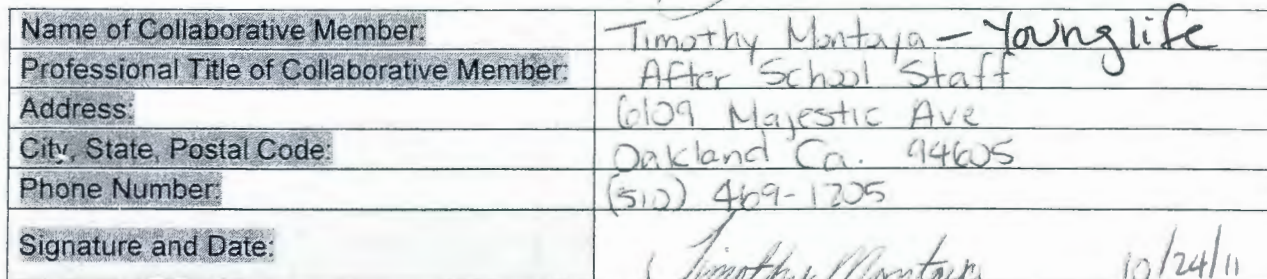 Name of Collaborative Member: Timothy Montoya - Young life
Professional Title of Collaborative Member: After School Staff
Address: 6109 Majestic Ave
City, State, Postal Code: Oakland Ca. 94605
Phone Number: (510) 469-1205
Signature and Date: Timothy Montoya 10/24/11